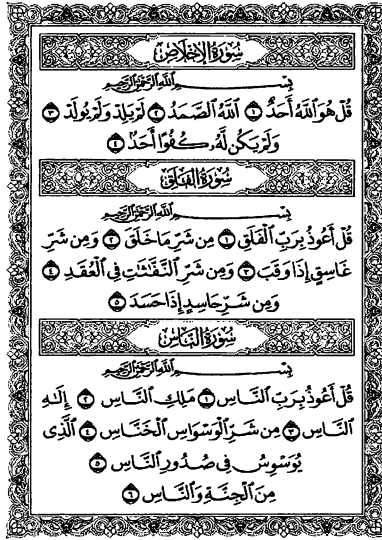 سُورَةُ الإِخْلَاصِ
بِسْمِ اللَّهِ الرَّحْمَٰنِ الرَّحِيمِ
قُلْ هُوَ ٱللَّهُ أَحَدٌ ١ ٱللَّهُ ٱلصَّمَدُ ٢ لَمْ يَلِدْ وَلَمْ يُولَدْ ٣
وَلَمْ يَكُن لَّهُۥ كُفُوًا أَحَدٌ ٤
سُورَةُ الفَلَقِ
بِسْمِ اللَّهِ الرَّحْمَٰنِ الرَّحِيمِ
قُلْ أَعُوذُ بِرَبِّ ٱلْفَلَقِ ١ مِن شَرِّ مَا خَلَقَ ٢ وَمِن شَرِّ
غَاسِقٍ إِذَا وَقَبَ ٣ وَمِن شَرِّ ٱلنَّفَّٰثَٰتِ فِى ٱلْعُقَدِ ٤
وَمِن شَرِّ حَاسِدٍ إِذَا حَسَدَ ٥
سُورَةُ النَّاسِ
بِسْمِ اللَّهِ الرَّحْمَٰنِ الرَّحِيمِ
قُلْ أَعُوذُ بِرَبِّ ٱلنَّاسِ ١ مَلِكِ ٱلنَّاسِ ٢ إِلَٰهِ
ٱلنَّاسِ ٣ مِن شَرِّ ٱلْوَسْوَاسِ ٱلْخَنَّاسِ ٤ ٱلَّذِى
يُوَسْوِسُ فِى صُدُورِ ٱلنَّاسِ ٥
مِنَ ٱلْجِنَّةِ وَٱلنَّاسِ ٦